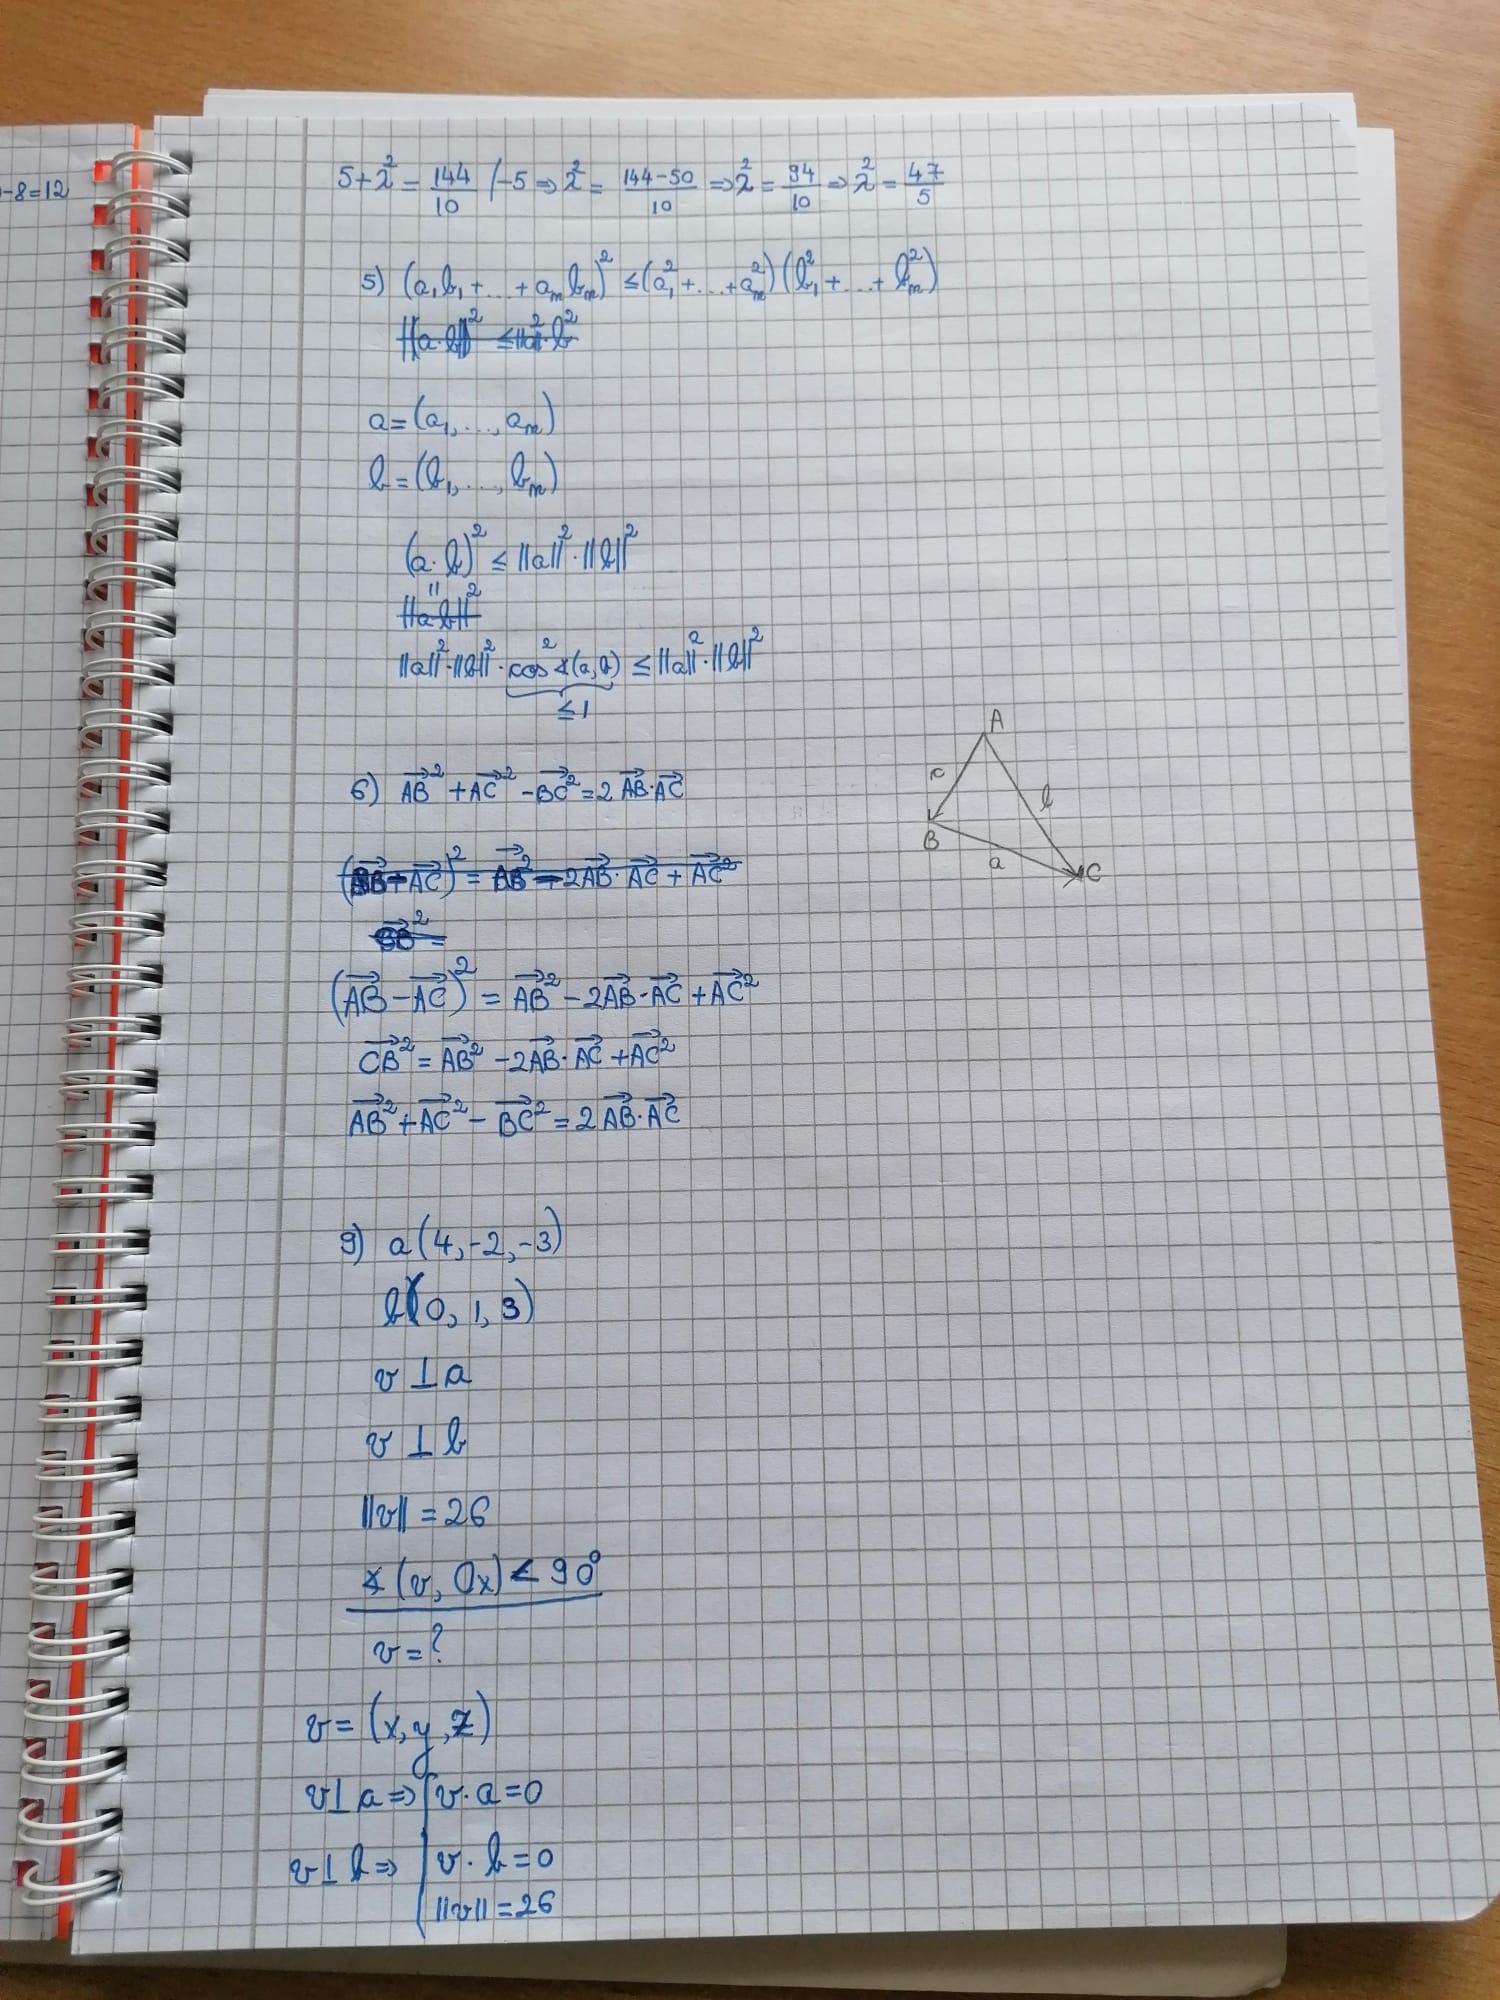 -8=12
5+λ² = 144/10 /-5 ⇒ λ² = 144-50/10 ⇒ λ² = 94/10 ⇒ λ² = 47/5
5) (a₁b₁+...+aₘbₘ)² ≤ (a₁²+...+aₘ²)(b₁²+...+bₘ²)
a=(a₁,...,aₘ)
b=(b₁,...,bₘ)
(a·b)² ≤ ||a||²·||b||²
"
||ab||²
||a||²·||b||²·cos²∢(a,b) ≤ ||a||²·||b||²
≤1
6) AB⃗² + AC⃗² - BC⃗² = 2AB⃗·AC⃗
A
c
b
B
a
C
(AB⃗ - AC⃗)² = AB⃗² - 2AB⃗·AC⃗ + AC⃗²
CB⃗² = AB⃗² - 2AB⃗·AC⃗ + AC⃗²
AB⃗² + AC⃗² - BC⃗² = 2AB⃗·AC⃗
9) a(4,-2,-3)
b(0,1,3)
v⊥a
v⊥b
||v||=26
∢(v,0x)<90°
v=?
v=(x,y,z)
v⊥a ⇒ v·a=0
v⊥b ⇒ v·b=0
||v||=26